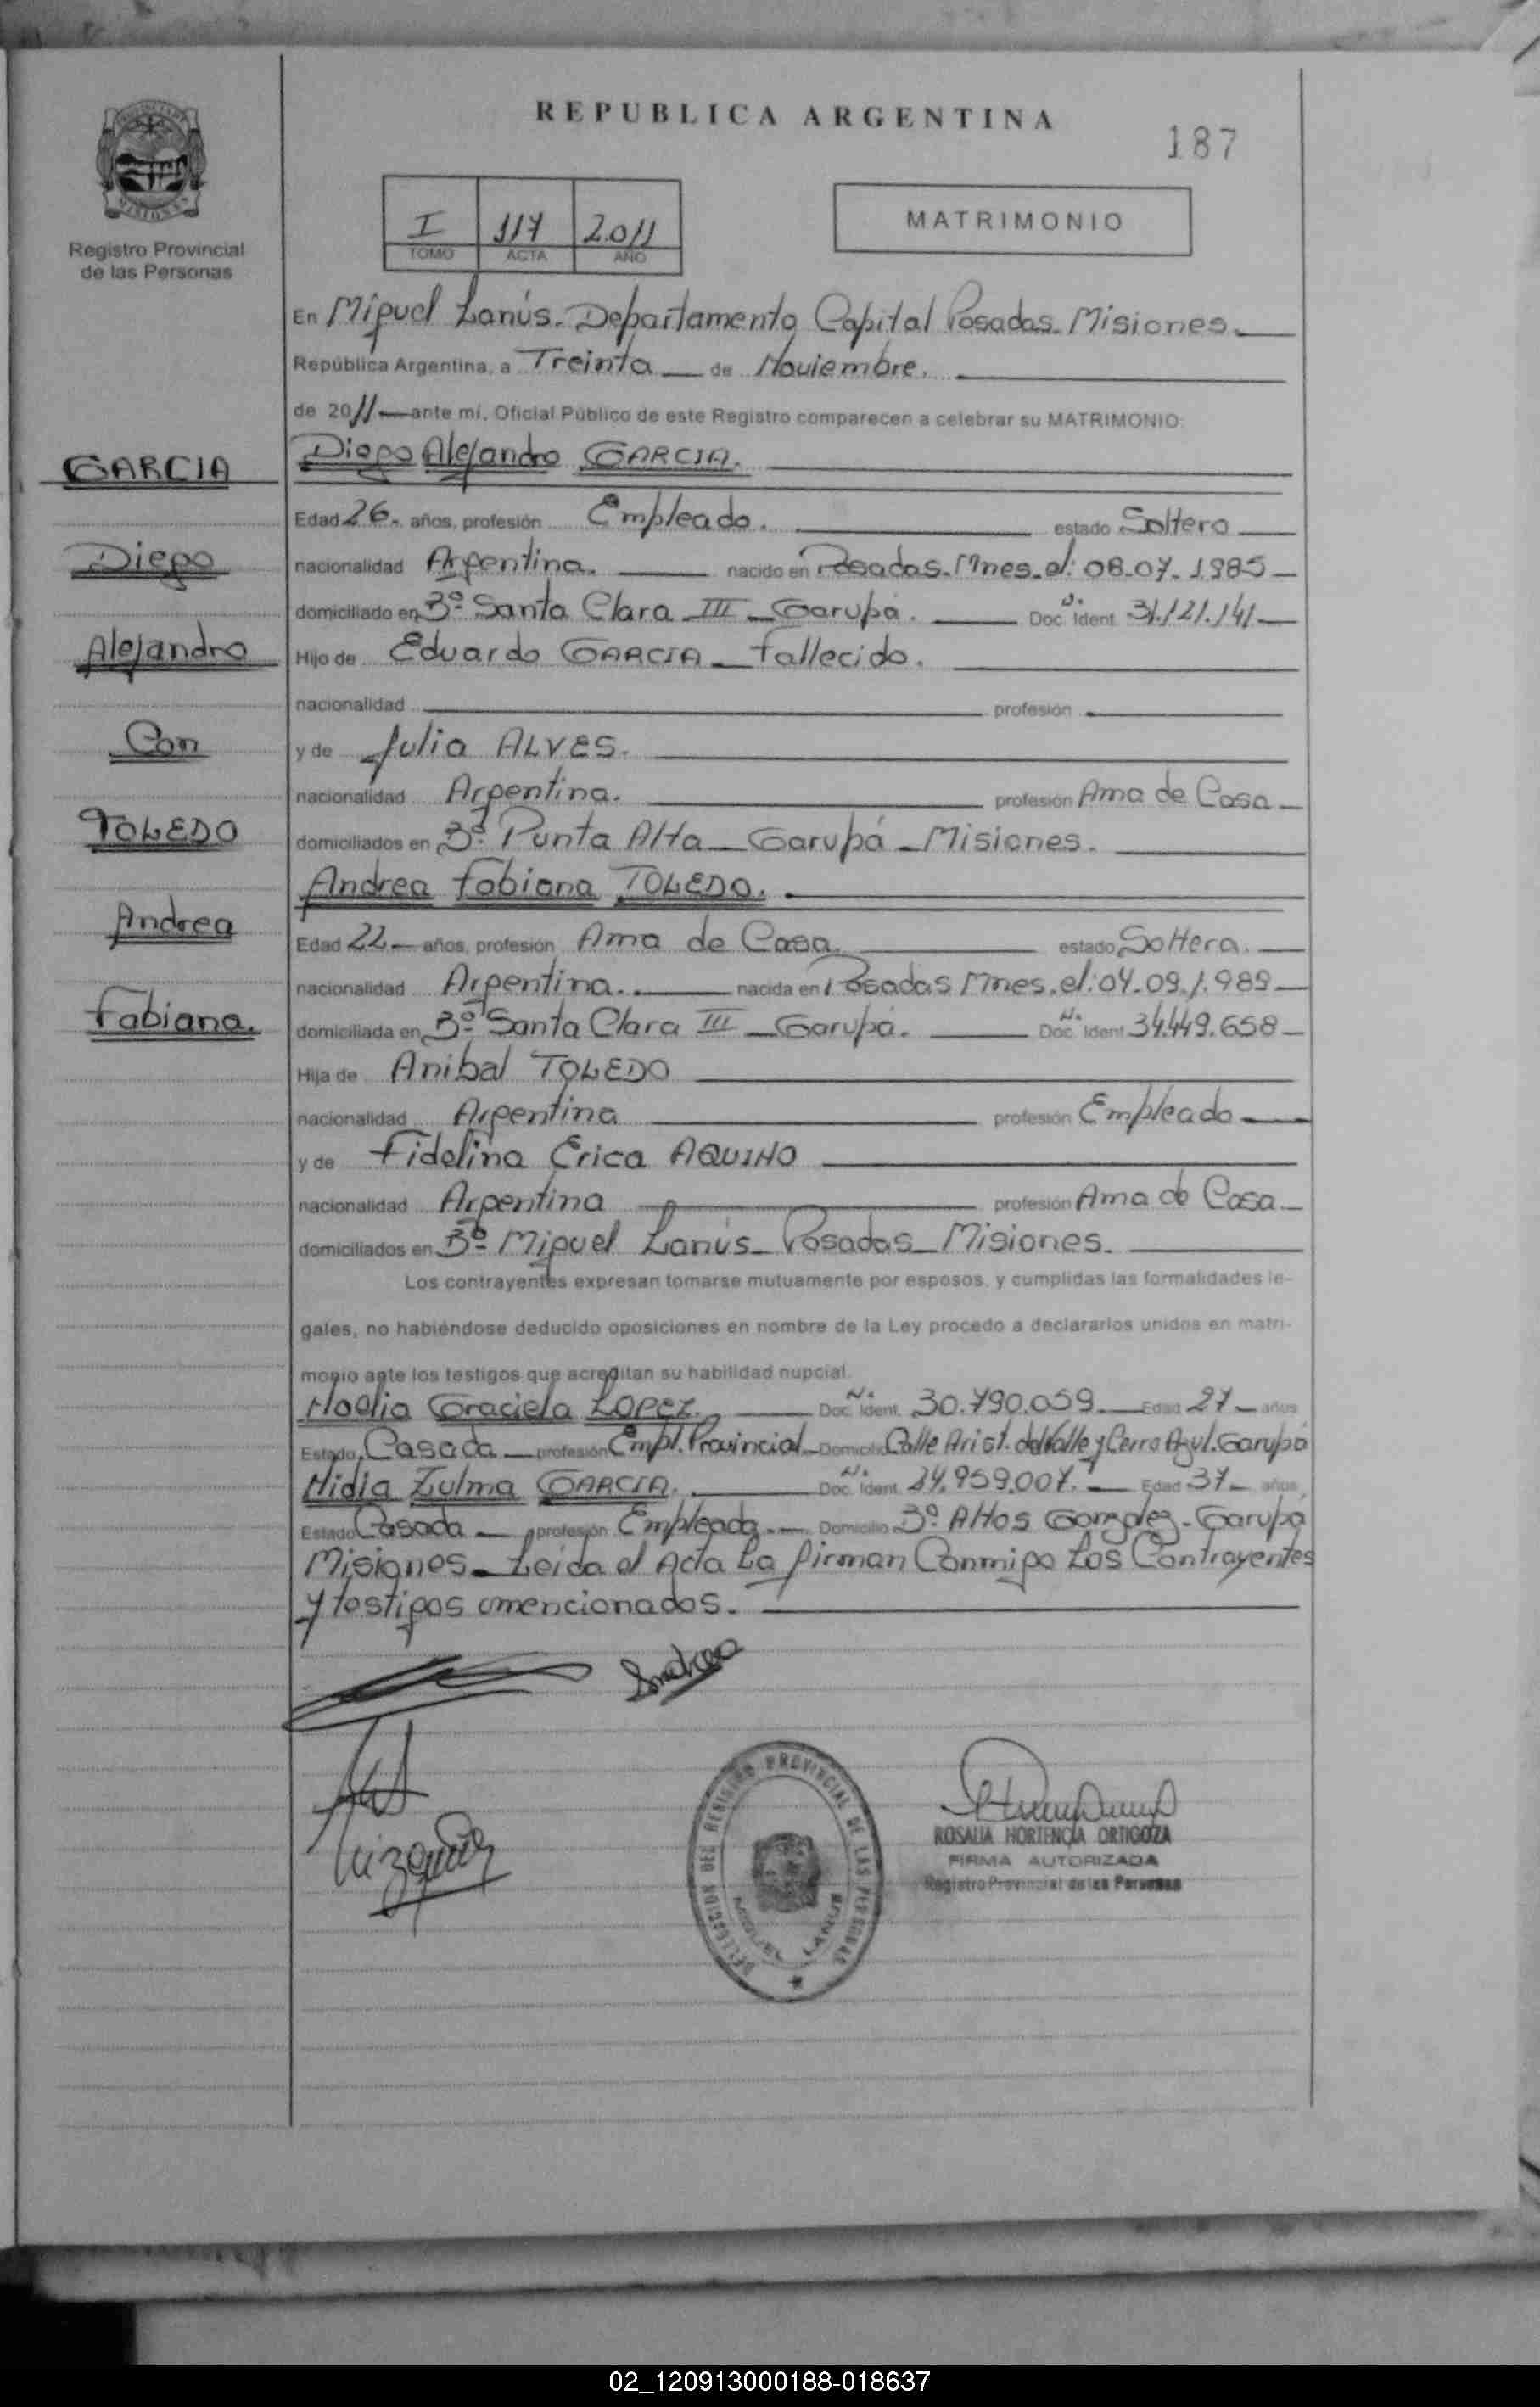 REPUBLICA ARGENTINA
187
Registro Provincial
de las Personas
I 117 2.011
TOMO ACTA AÑO
MATRIMONIO
En Miguel Lanús. Departamento Capital Posadas. Misiones.
República Argentina, a Treinta de Noviembre.
de 2011 ante mí, Oficial Público de este Registro comparecen a celebrar su MATRIMONIO:
GARCIA
Diego
Alejandro
Con
TOLEDO
Andrea
Fabiana.
Diego Alejandro GARCIA.
Edad 26. años, profesión Empleado. estado Soltero
nacionalidad Argentina. nacido en Posadas. Mnes. el: 08-07-1985
domiciliado en Bº Santa Clara III Garupá. Doc. Ident. N. 31.121.141
Hijo de Eduardo GARCIA Fallecido.
nacionalidad profesión
y de Julia ALVES.
nacionalidad Argentina. profesión Ama de Casa
domiciliados en Bº Punta Alta Garupá Misiones.
Andrea Fabiana TOLEDO.
Edad 22 años, profesión Ama de Casa. estado Soltera.
nacionalidad Argentina. nacida en Posadas Mnes. el: 04.09.1.989
domiciliada en Bº Santa Clara III Garupá. Doc. Ident. N. 34.449.658
Hija de Anibal TOLEDO
nacionalidad Argentina profesión Empleado
y de Fidelina Erica AQUINO
nacionalidad Argentina profesión Ama de Casa
domiciliados en Bº Miguel Lanús Posadas Misiones.
Los contrayentes expresan tomarse mutuamente por esposos, y cumplidas las formalidades le-
gales, no habiéndose deducido oposiciones en nombre de la Ley procedo a declararlos unidos en matri-
monio ante los testigos que acreditan su habilidad nupcial.
Noelia Graciela LOPEZ. Doc. Ident. N. 30.790.059 Edad 27 años
Estado Casada profesión Empl. Provincial Domicilio Calle Arist. del Valle y Cerro Azul. Garupá
Nidia Zulma GARCIA. Doc. Ident. N. 24.959.007. Edad 37 años,
Estado Casada profesión Empleada. Domicilio Bº Altos Gonzalez - Garupá
Misiones. Leida el Acta La firman Conmigo Los Contrayentes
y testigos omencionados.
Andrea
DELEGACION DEL REGISTRO PROVINCIAL DE LAS PERSONAS
MIGUEL LANUS
ROSALIA HORTENCIA ORTIGOZA
FIRMA AUTORIZADA
Registro Provincial de las Personas
02_120913000188-018637